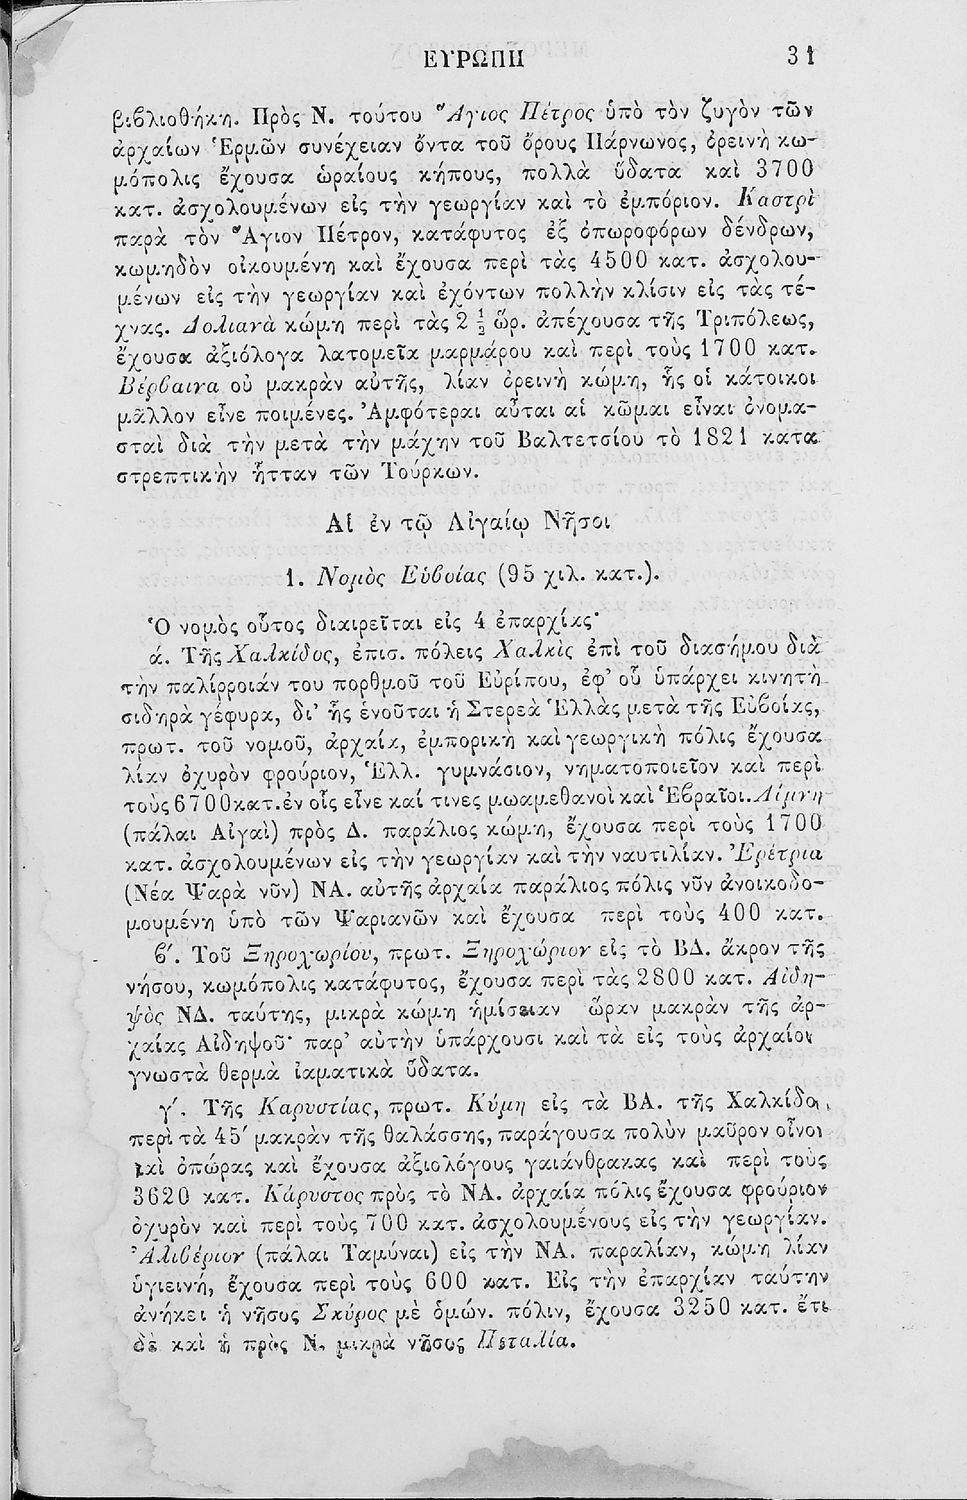 ΕΥΡΩΠΗ 31
βιβλιοθήκη. Πρὸς Ν. τούτου Ἅγιος Πέτρος ὑπὸ τὸν ζυγὸν τῶν
ἀρχαίων Ἑρμῶν συνέχειαν ὄντα τοῦ ὄρους Πάρνωνος, ὀρεινὴ κω-
μόπολις ἔχουσα ὡραίους κήπους, πολλὰ ὕδατα καὶ 3700
κατ. ἀσχολουμένων εἰς τὴν γεωργίαν καὶ τὸ ἐμπόριον. Καστρὶ
παρὰ τὸν Ἅγιον Πέτρον, κατάφυτος ἐξ ὀπωροφόρων δένδρων,
κωμηδὸν οἰκουμένη καὶ ἔχουσα περὶ τὰς 4500 κατ. ἀσχολου-
μένων εἰς τὴν γεωργίαν καὶ ἐχόντων πολλὴν κλίσιν εἰς τὰς τέ-
χνας. Δολιανὰ κώμη περὶ τὰς 2 ½ ὥρ. ἀπέχουσα τῆς Τριπόλεως,
ἔχουσα ἀξιόλογα λατομεῖα μαρμάρου καὶ περὶ τοὺς 1700 κατ.
Βέρβαινα οὐ μακρὰν αὐτῆς, λίαν ὀρεινὴ κώμη, ἧς οἱ κάτοικοι
μᾶλλον εἶνε ποιμένες. Ἀμφότεραι αὗται αἱ κῶμαι εἶναι ὀνομα-
σταὶ διὰ τὴν μετὰ τὴν μάχην τοῦ Βαλτετσίου τὸ 1821 κατα
στρεπτικὴν ἧτταν τῶν Τούρκων.
Αἱ ἐν τῷ Αἰγαίῳ Νῆσοι
1. Νομὸς Εὐβοίας (95 χιλ. κατ.).
Ὁ νομὸς οὗτος διαιρεῖται εἰς 4 ἐπαρχίας·
ά. Τῆς Χαλκίδος, ἐπισ. πόλεις Χαλκὶς ἐπὶ τοῦ διασήμου διὰ
τὴν παλίρροιάν του πορθμοῦ τοῦ Εὐρίπου, ἐφ' οὗ ὑπάρχει κινητὴ
σιδηρὰ γέφυρα, δι' ἧς ἑνοῦται ἡ Στερεὰ Ἑλλὰς μετὰ τῆς Εὐβοίας,
πρωτ. τοῦ νομοῦ, ἀρχαία, ἐμπορικὴ καὶ γεωργικὴ πόλις ἔχουσα
λίαν ὀχυρὸν φρούριον, Ἑλλ. γυμνάσιον, νηματοποιεῖον καὶ περὶ
τοὺς 6700 κατ. ἐν οἷς εἶνε καί τινες μωαμεθανοὶ καὶ Ἑβραῖοι. Λίμνη
(πάλαι Αἰγαὶ) πρὸς Δ. παράλιος κώμη, ἔχουσα περὶ τοὺς 1700
κατ. ἀσχολουμένων εἰς τὴν γεωργίαν καὶ τὴν ναυτιλίαν. Ἐρέτρια
(Νέα Ψαρὰ νῦν) ΝΑ. αὐτῆς ἀρχαία παράλιος πόλις νῦν ἀνοικοδο-
μουμένη ὑπὸ τῶν Ψαριανῶν καὶ ἔχουσα περὶ τοὺς 400 κατ.
β'. Τοῦ Ξηροχωρίου, πρωτ. Ξηροχώριον εἰς τὸ ΒΔ. ἄκρον τῆς
νήσου, κωμόπολις κατάφυτος, ἔχουσα περὶ τὰς 2800 κατ. Αἰδη-
ψὸς ΝΔ. ταύτης, μικρὰ κώμη ἡμίσειαν ὥραν μακρὰν τῆς ἀρ-
χαίας Αἰδηψοῦ· παρ' αὐτὴν ὑπάρχουσι καὶ τὰ εἰς τοὺς ἀρχαίου
γνωστὰ θερμὰ ἰαματικὰ ὕδατα.
γ'. Τῆς Καρυστίας, πρωτ. Κύμη εἰς τὰ ΒΑ. τῆς Χαλκίδο,
περὶ τὰ 45′ μακρὰν τῆς θαλάσσης, παράγουσα πολὺν μαῦρον οἶνον
καὶ ὀπώρας καὶ ἔχουσα ἀξιολόγους γαιάνθρακας καὶ περὶ τοὺς
3620 κατ. Κάρυστος πρὸς τὸ ΝΑ. ἀρχαία πόλις ἔχουσα φρούριον
ὀχυρὸν καὶ περὶ τοὺς 700 κατ. ἀσχολουμένους εἰς τὴν γεωργίαν.
Ἀλιβέριον (πάλαι Ταμύναι) εἰς τὴν ΝΑ. παραλίαν, κώμη λίαν
ὑγιεινή, ἔχουσα περὶ τοὺς 600 κατ. Εἰς τὴν ἐπαρχίαν ταύτην
ἀνήκει ἡ νῆσος Σκύρος μὲ ὁμών. πόλιν, ἔχουσα 3250 κατ. ἔτι
δὲ καὶ ἡ πρὸς Ν. μικρὰ νῆσος Πεταλία.